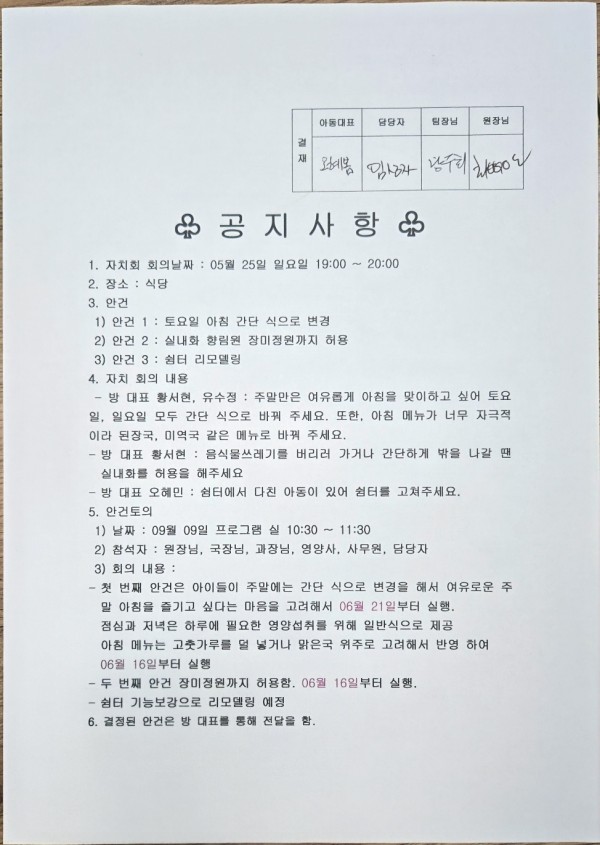 결재
아동대표 담당자 팀장님 원장님
♣ 공 지 사 항 ♣
1. 자치회 회의날짜 : 05월 25일 일요일 19:00 ~ 20:00
2. 장소 : 식당
3. 안건
1) 안건 1 : 토요일 아침 간단 식으로 변경
2) 안건 2 : 실내화 향림원 장미정원까지 허용
3) 안건 3 : 쉼터 리모델링
4. 자치 회의 내용
- 방 대표 황서현, 유수정 : 주말만은 여유롭게 아침을 맞이하고 싶어 토요
일, 일요일 모두 간단 식으로 바꿔 주세요. 또한, 아침 메뉴가 너무 자극적
이라 된장국, 미역국 같은 메뉴로 바꿔 주세요.
- 방 대표 황서현 : 음식물쓰레기를 버리러 가거나 간단하게 밖을 나갈 땐
실내화를 허용을 해주세요
- 방 대표 오혜민 : 쉼터에서 다친 아동이 있어 쉼터를 고쳐주세요.
5. 안건토의
1) 날짜 : 09월 09일 프로그램 실 10:30 ~ 11:30
2) 참석자 : 원장님, 국장님, 과장님, 영양사, 사무원, 담당자
3) 회의 내용 :
- 첫 번째 안건은 아이들이 주말에는 간단 식으로 변경을 해서 여유로운 주
말 아침을 즐기고 싶다는 마음을 고려해서 06월 21일부터 실행.
점심과 저녁은 하루에 필요한 영양섭취를 위해 일반식으로 제공
아침 메뉴는 고춧가루를 덜 넣거나 맑은국 위주로 고려해서 반영 하여
06월 16일부터 실행
- 두 번째 안건 장미정원까지 허용함. 06월 16일부터 실행.
- 쉼터 기능보강으로 리모델링 예정
6. 결정된 안건은 방 대표를 통해 전달을 함.